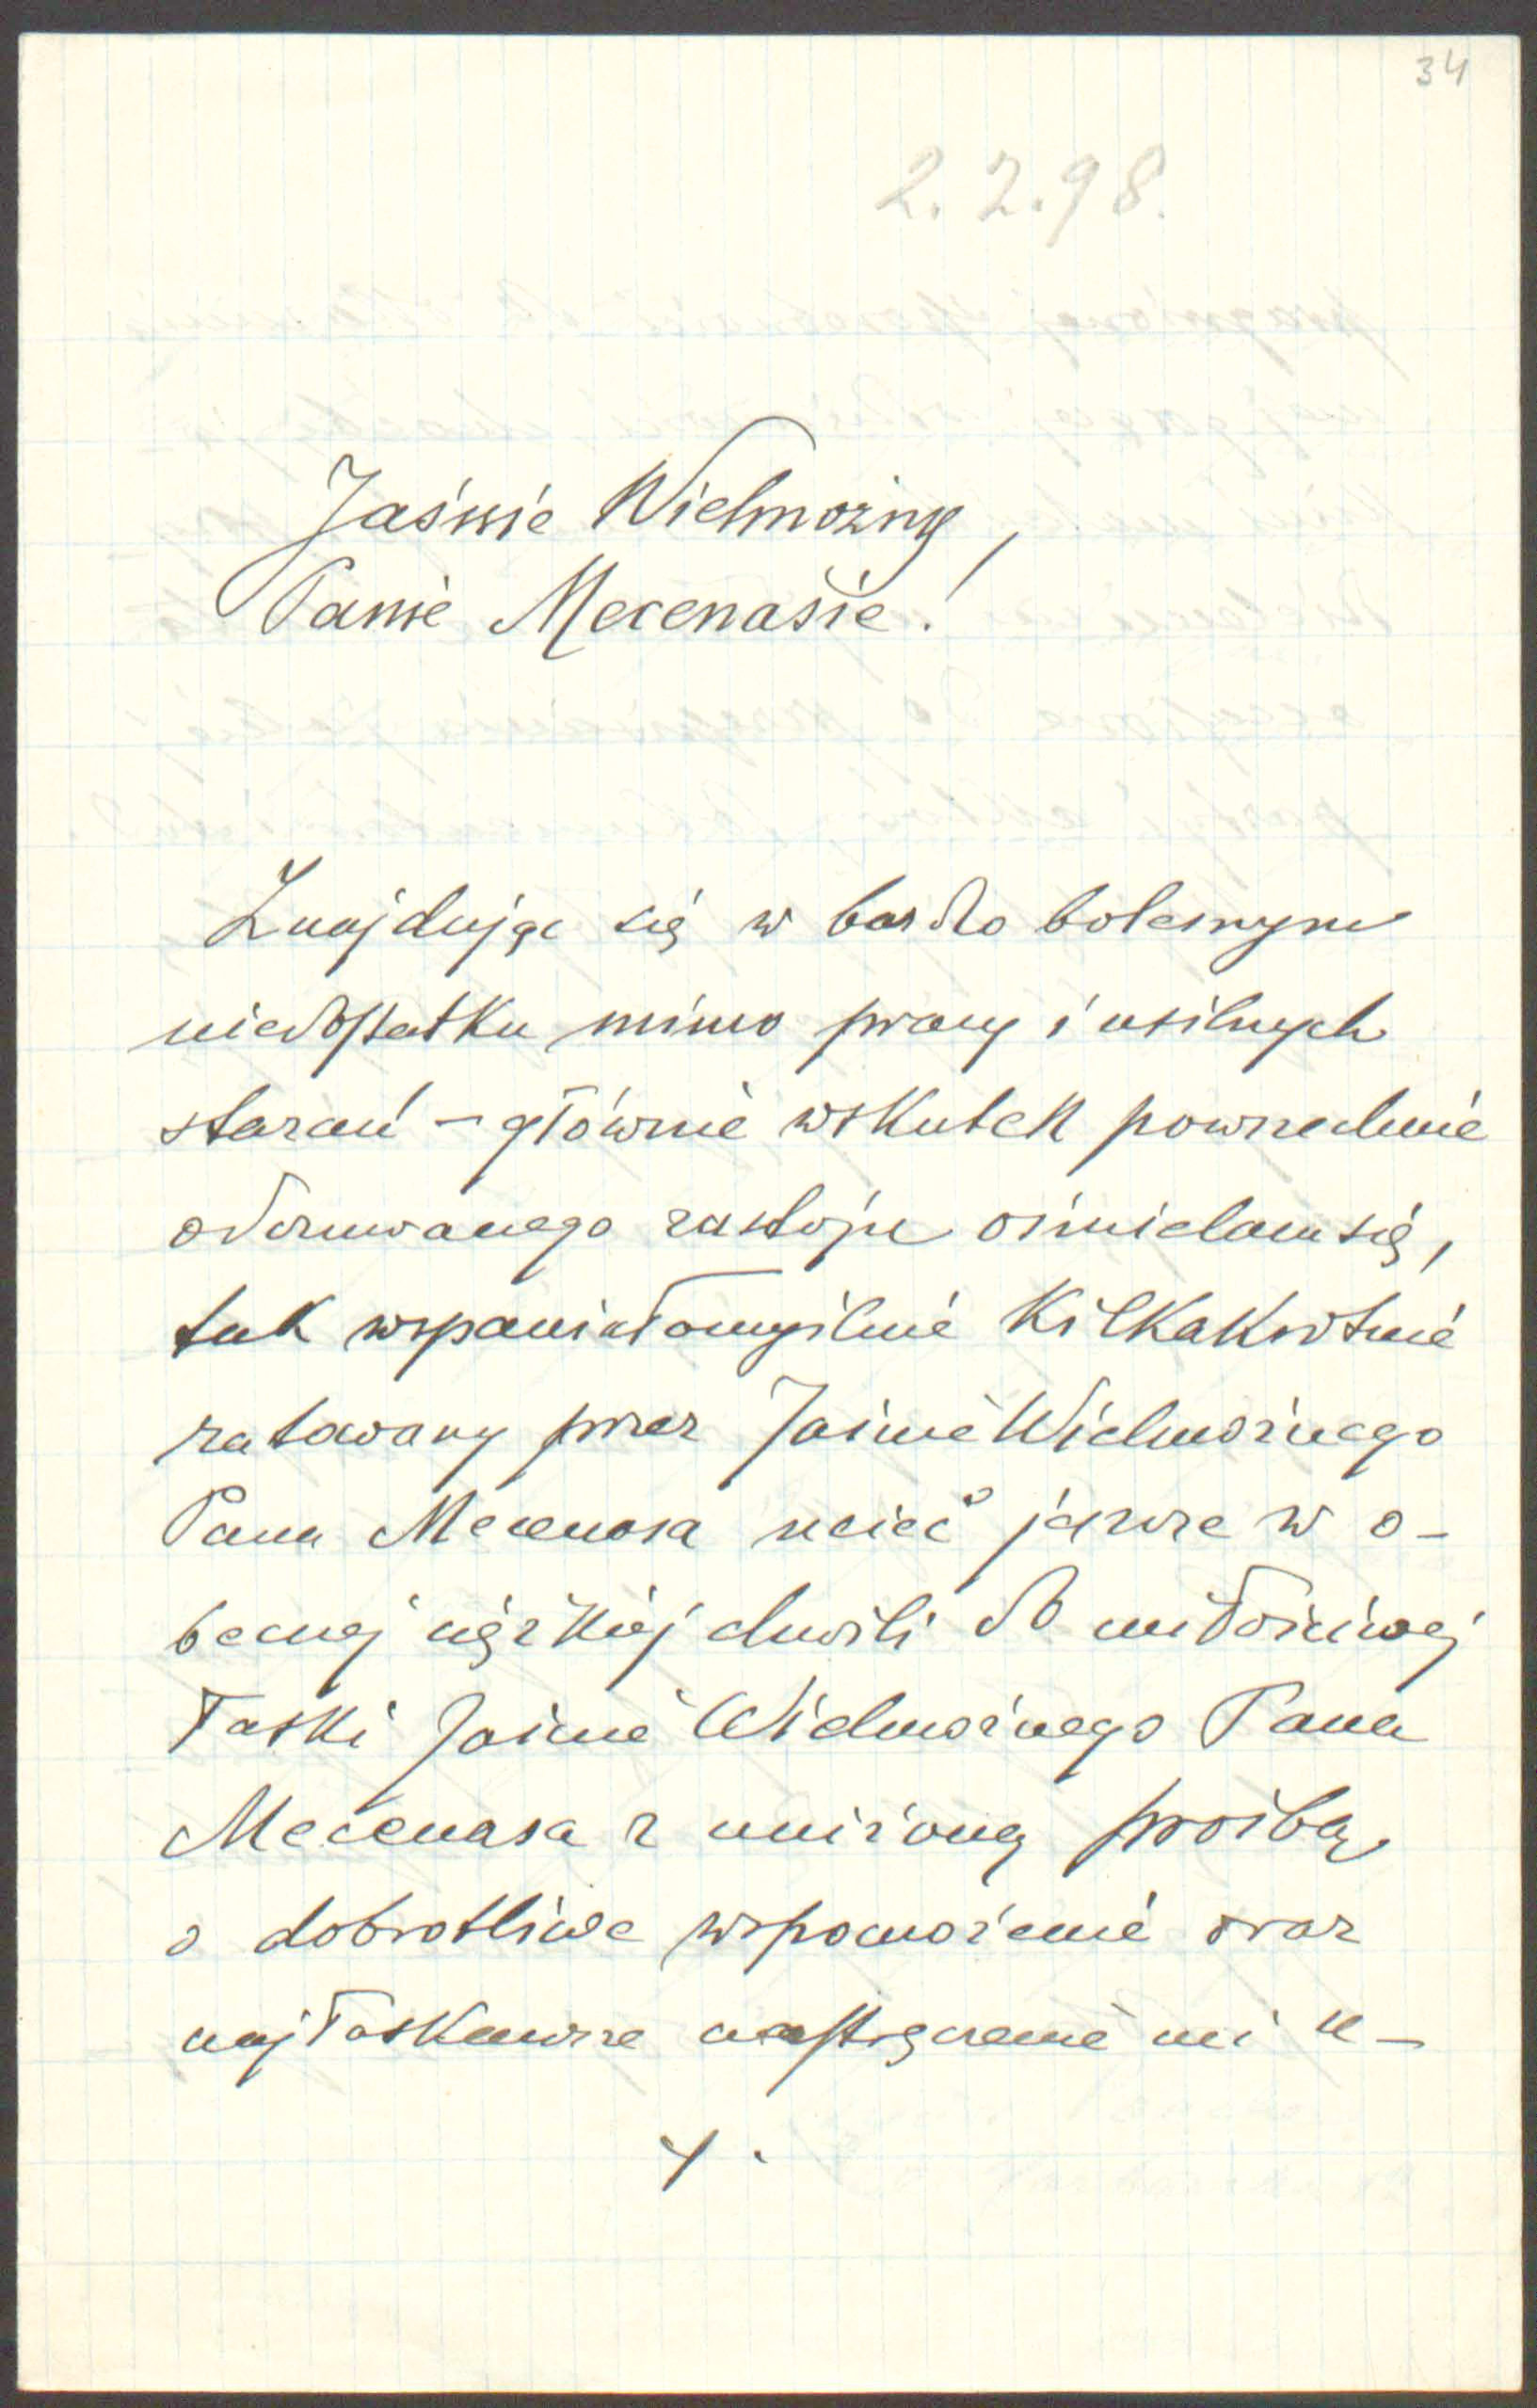 34
2.2.98.
Jaśnie Wielmożny,
Panie Mecenasie!
Znajdując się w bardzo bolesnym
niedostatku mimo pracy i usilnych
starań – głównie wskutek powszechnie
odczuwanego zastoju ośmielam się,
tak wspaniałomyślnie kilkakrotnie
ratowany przez Jaśnie Wielmożnego
Pana Mecenasa uciec jeszcze w o-
becnej ciężkiej chwili do miłościwej
łaski Jaśnie Wielmożnego Pana
Mecenasa z uniżoną prośbą
o dobrotliwe wspomożenie oraz
najłaskawsze nastręczenie mi u-